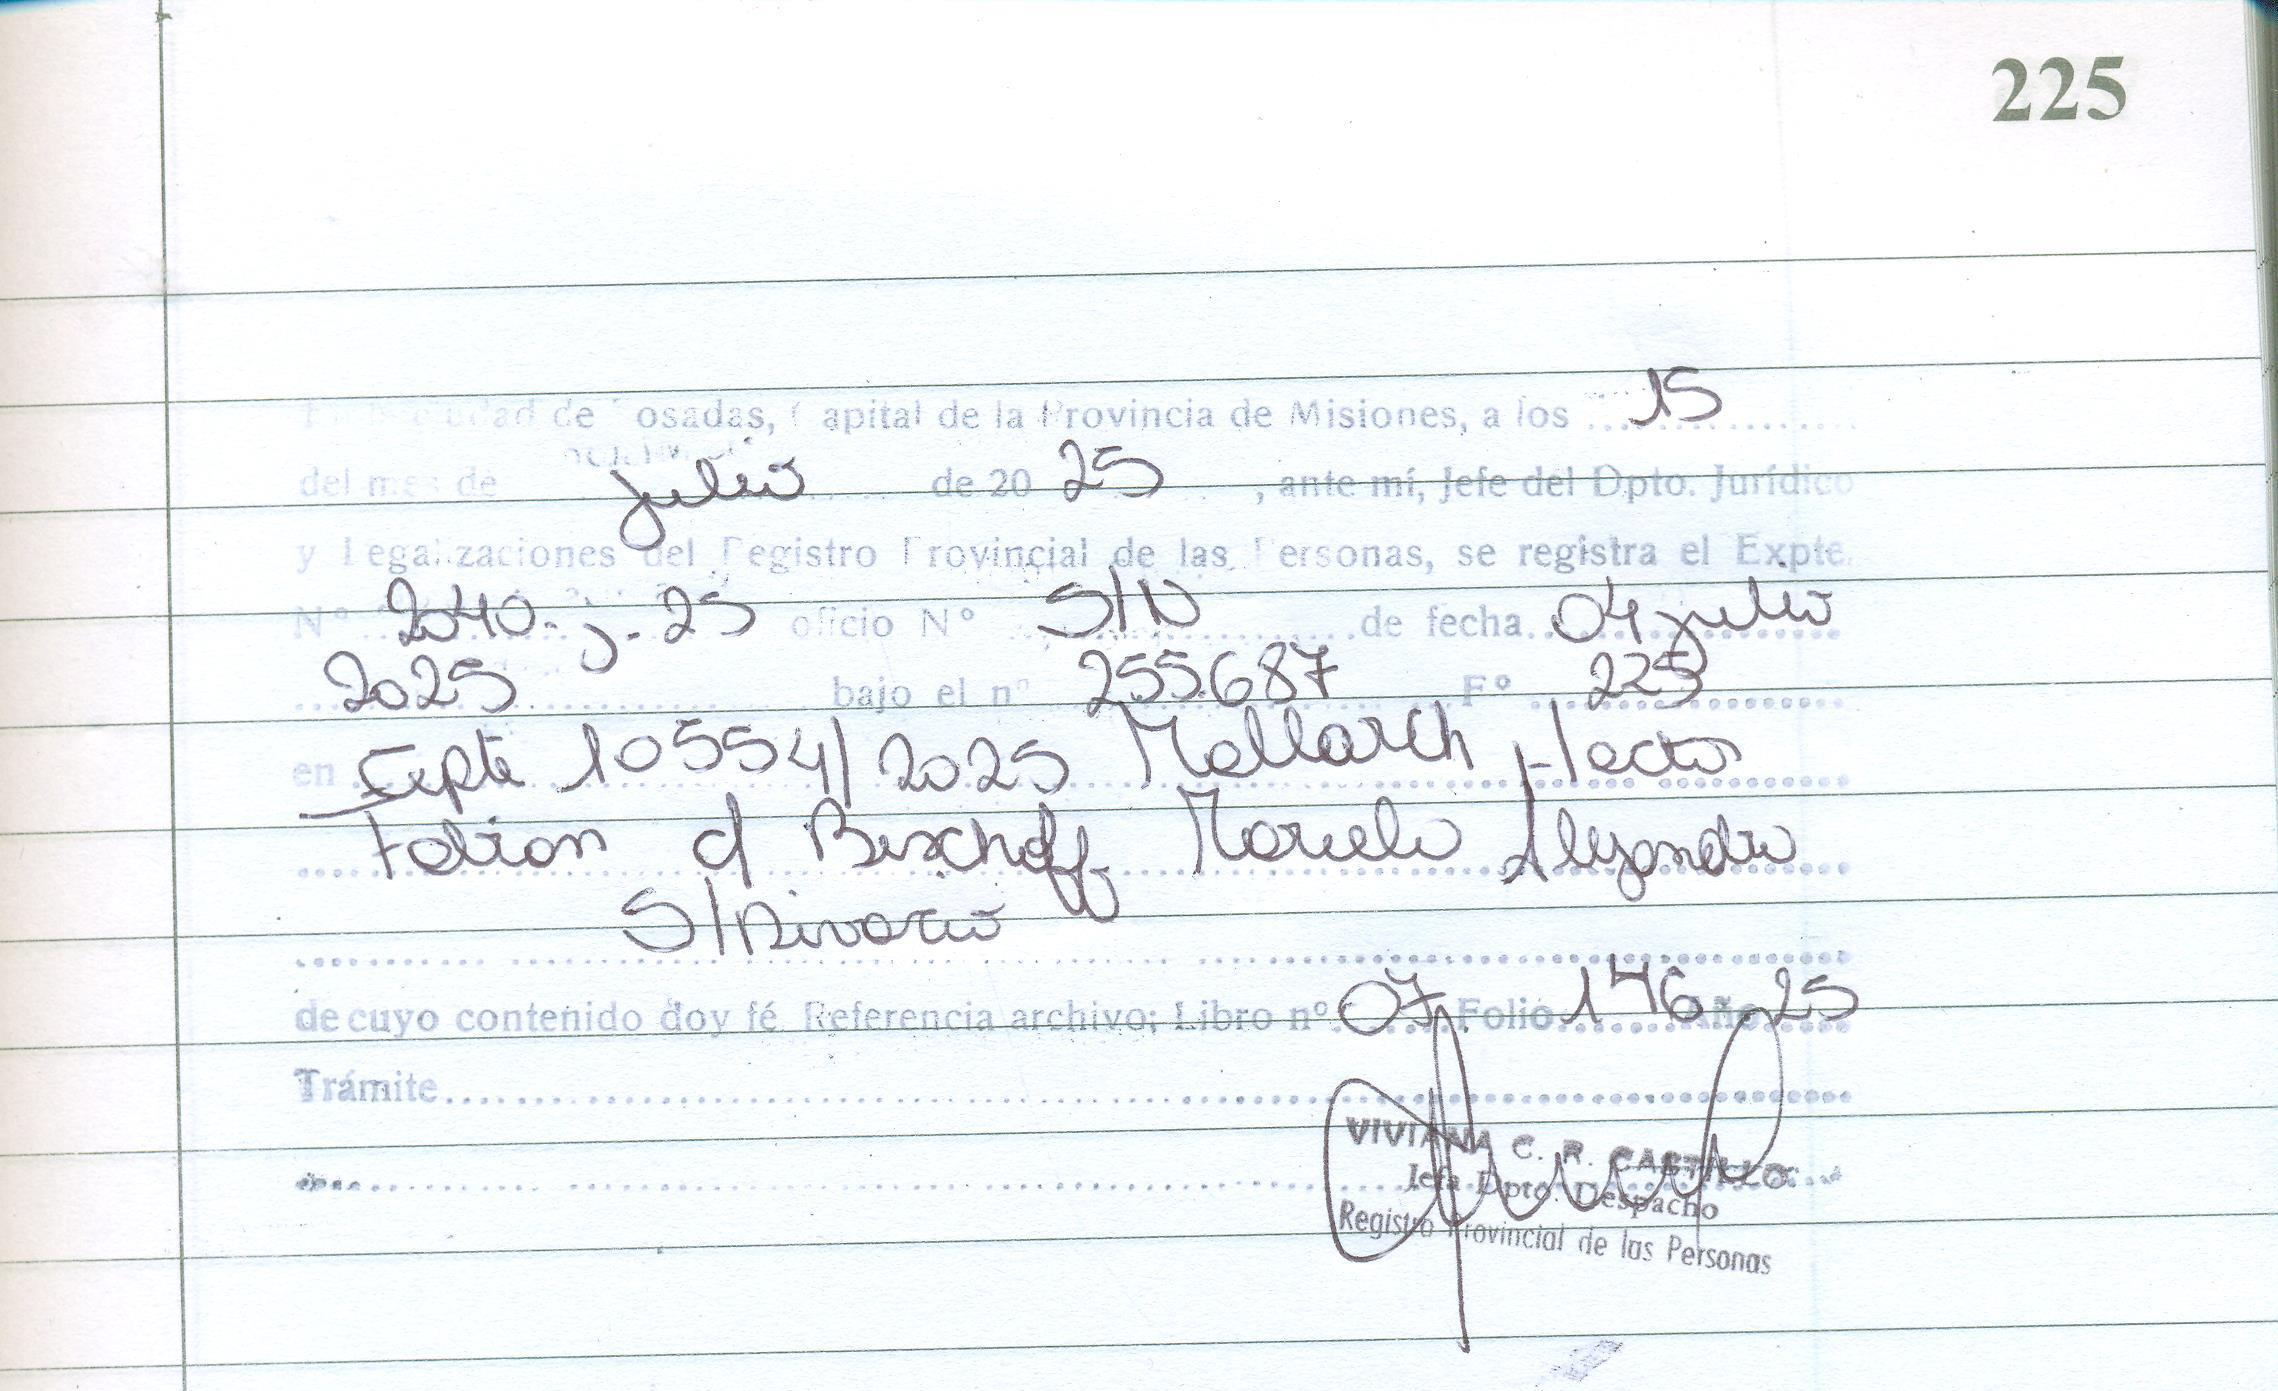 225
En la ciudad de Posadas, Capital de la Provincia de Misiones, a los 15
del mes de julio de 20 25, ante mí, Jefe del Dpto. Jurídico
y Legalizaciones del Registro Provincial de las Personas, se registra el Expte.
Nº 2040-J-25 oficio Nº S/N de fecha 04 julio
2025 bajo el nº 255.687 Fº 225
en Expte 105541/2025 Mallarch Hector
Fabian c/ Bischoff Marcelo Alejandro
S/Divorcio
de cuyo contenido doy fé Referencia archivo; Libro nº 07 Folio 146 Año 25
Trámite
VIVIANA C. R. CASTILLO
Jefa Dpto. Despacho
Registro Provincial de las Personas